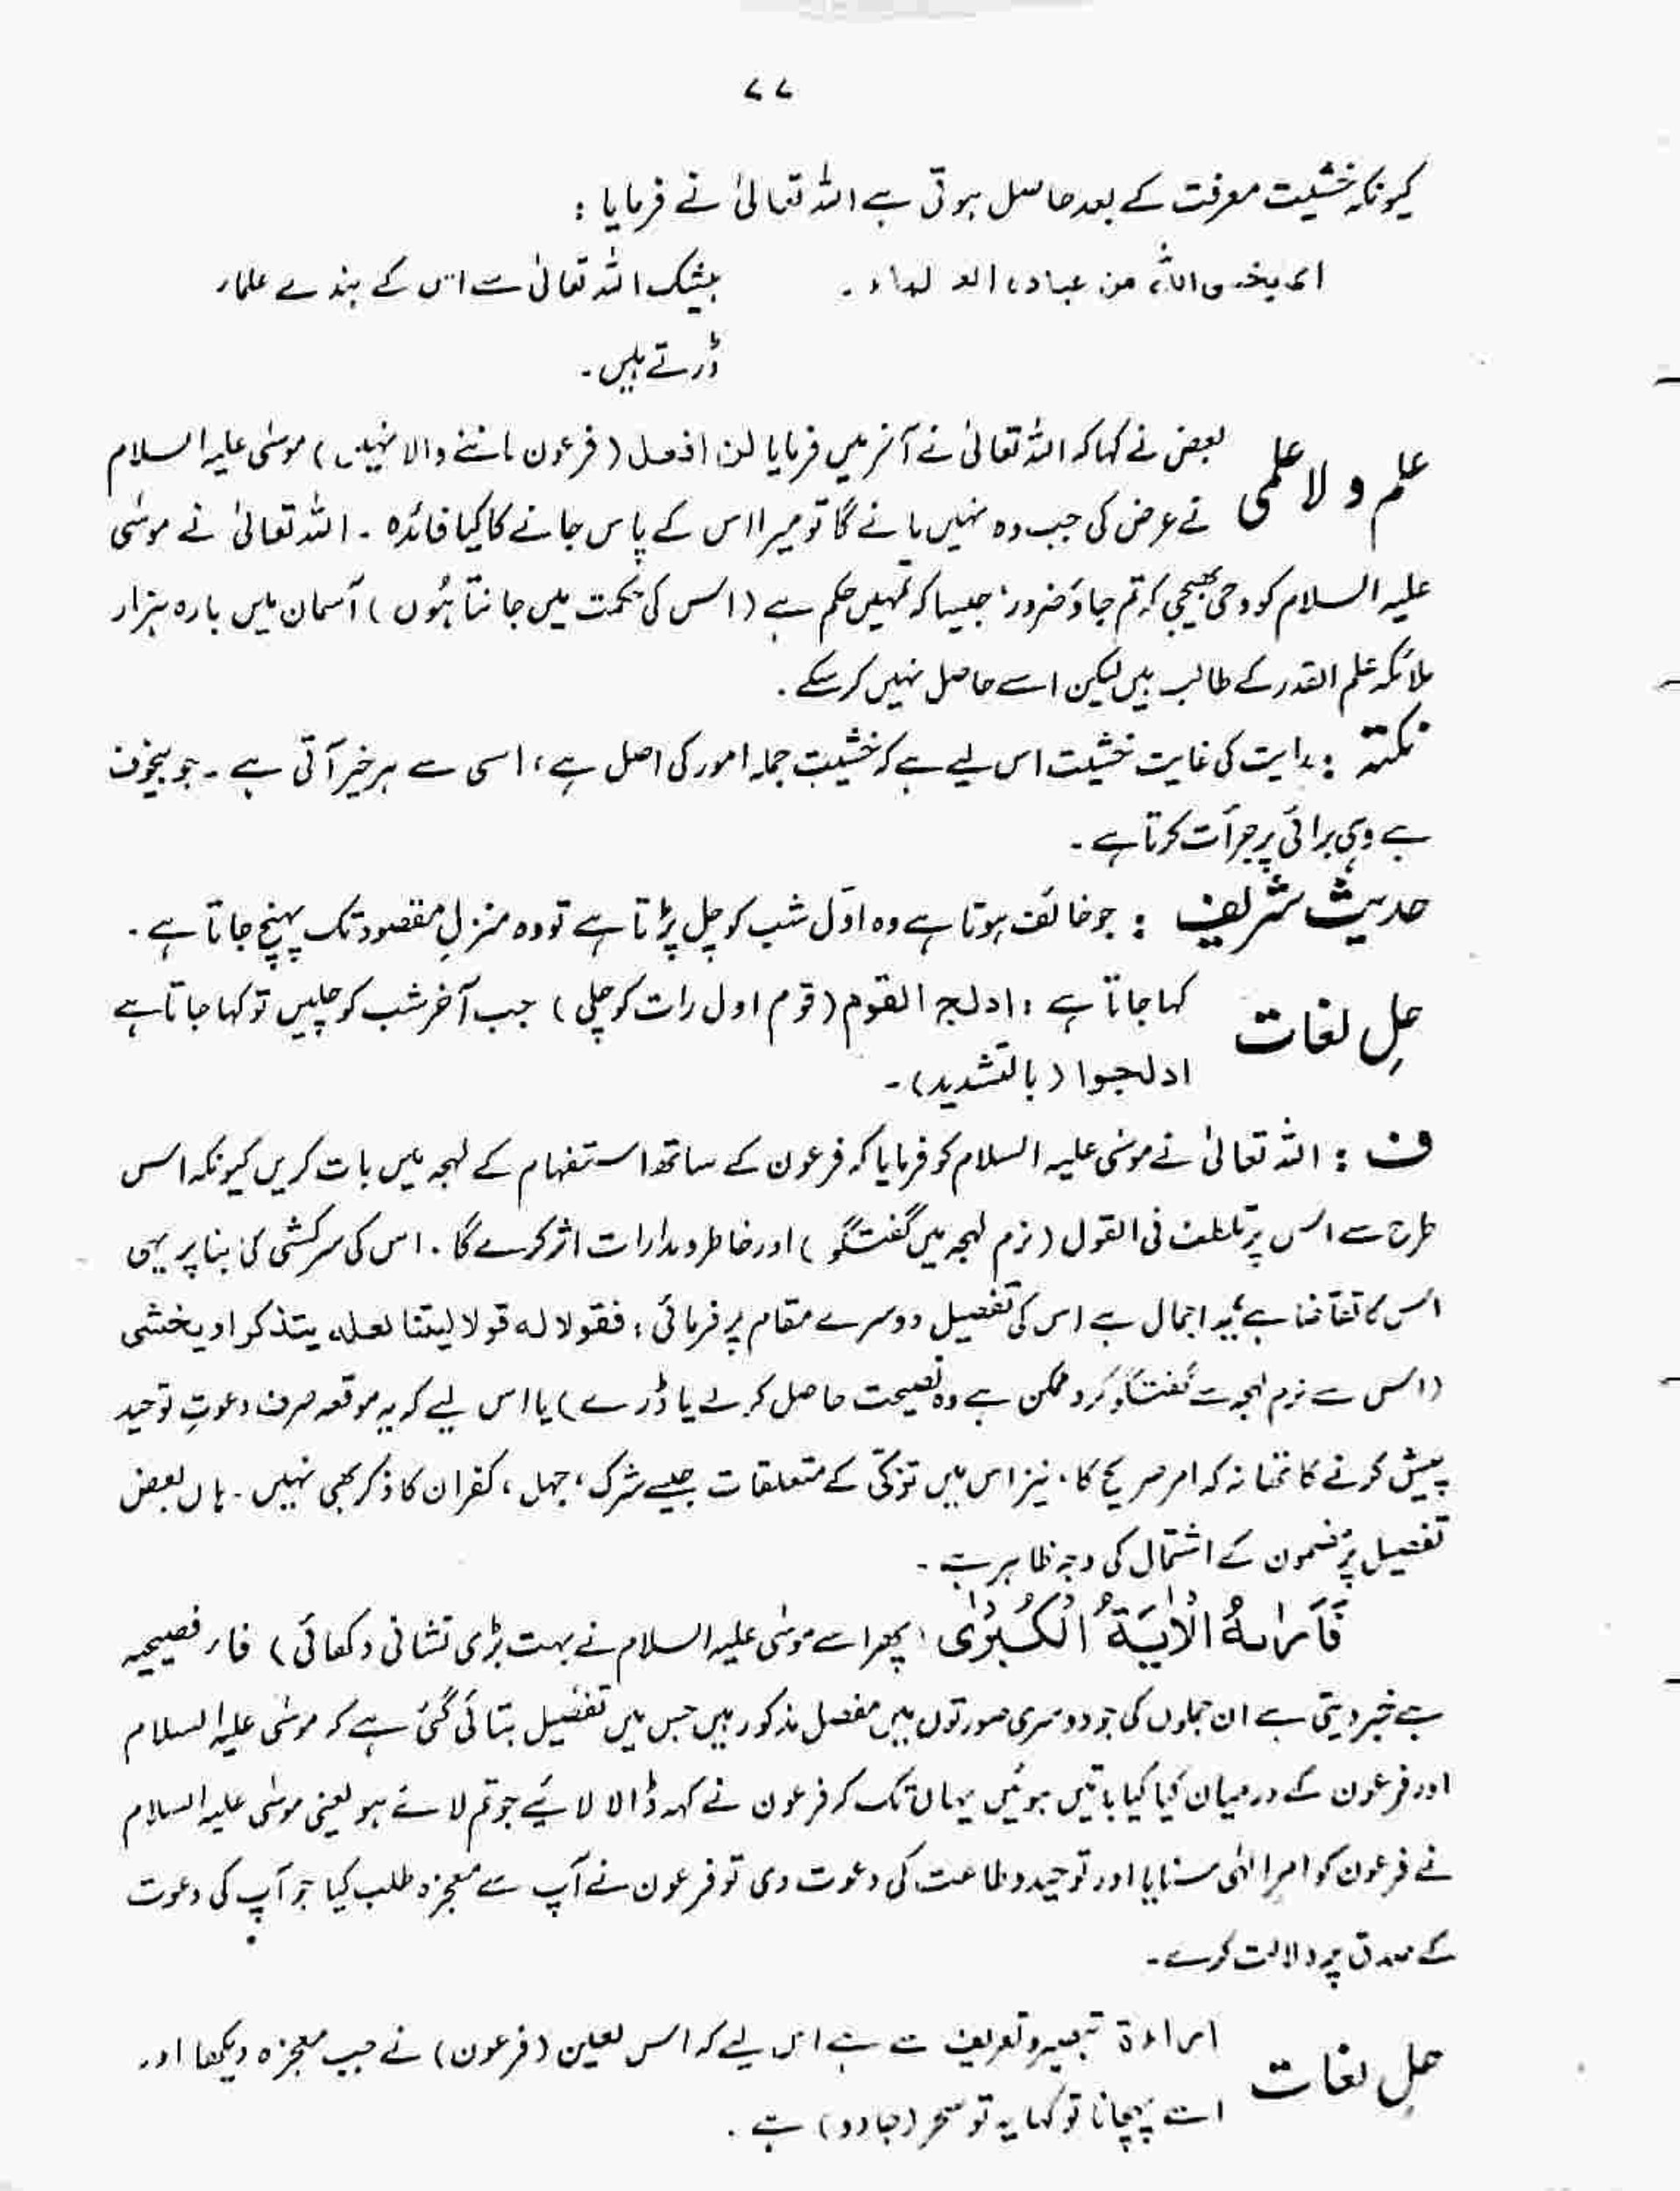 ۷۷
کیونکہ خشیت معرفت کے بعد حاصل ہوتی ہے اللہ تعالیٰ نے فرمایا :
یخشی اللہ من عباده العلماء . بیشک اللہ تعالیٰ سے اس کے بندے علماء
ڈرتے ہیں ۔
علم و لاعلمی بعض نے کہا کہ اللہ تعالیٰ نے آخر میں فرمایا لن افعل (فرعون ماننے والا نہیں) موسٰی علیہ السلام
نے عرض کی جب وہ نہیں مانے گا تو میرا اس کے پاس جانے کا کیا فائدہ ۔ اللہ تعالیٰ نے موسٰی
علیہ السلام کو وحی بھیجی کہ تم جاؤ ضرور، جیسا کہ تمہیں حکم ہے (اس کی حکمت میں جانتا ہُوں) آسمان میں بارہ ہزار
ملائکہ علم القدر کے طالب ہیں لیکن اسے حاصل نہیں کر سکے ۔
نکتہ : ہدایت کی غایت خشیت اس لیے ہے کہ خشیت جملہ امور کی اصل ہے، اسی سے ہر خیر آتی ہے ۔ جو بیخوف
ہے وہی برائی پر جرأت کرتا ہے ۔
حدیث شریف : جو خائف ہوتا ہے وہ اوّل شب کو چل پڑتا ہے تو وہ منزلِ مقصود تک پہنچ جاتا ہے ۔
حلِ لغات کہا جاتا ہے : ادلج القوم (قوم اول رات کو چلی) جب آخر شب کو چلیں تو کہا جاتا ہے
ادلجوا (بالتشدید) ۔
ف : اللہ تعالیٰ نے موسٰی علیہ السلام کو فرمایا کہ فرعون کے ساتھ استفہام کے لہجہ میں بات کریں کیونکہ اس
طرح سے اس پر تلطف فی القول (نرم لہجہ میں گفتگو) اور خاطر و مدارات اثر کرے گا ۔ اس کی سرکشی کی بنا پر یہی
اس کا تقاضا ہے یہ اجمال ہے اس کی تفصیل دوسرے مقام پر فرمائی : فقولا له قولا لیتنا لعله یتذکر او یخشی
(اس سے نرم لہجہ سے گفتگو کرو ممکن ہے وہ نصیحت حاصل کرلے یا ڈرے) یا اس لیے کہ یہ موقعہ صرف دعوتِ توحید
پیش کرنے کا تھا نہ کہ امر صریح کا ، نیز اس میں تزکّی کے متعلقات جیسے شرک، جہل، کفران کا ذکر بھی نہیں ۔ ہاں بعض
تفصیل پر مضمون کے اشتمال کی وجہ ظاہر ہے ۔
فَاَرٰىهُ الْاٰيَةَ الْكُبْرٰى (پھر اسے موسٰی علیہ السلام نے بہت بڑی نشانی دکھائی) فاء فصیحیہ
ہے خبر دیتی ہے ان جملوں کی جو دوسری صورتوں میں مفصل مذکور ہیں جس میں تفصیل بتائی گئی ہے کہ موسٰی علیہ السلام
اور فرعون کے درمیان کیا کیا باتیں ہوئیں یہاں تک کہ فرعون نے کہہ ڈالا لائیے جو تم لائے ہو یعنی موسٰی علیہ السلام
نے فرعون کو امرِ الٰہی سنایا اور توحید و طاعت کی دعوت دی تو فرعون نے آپ سے معجزہ طلب کیا جو آپ کی دعوت
کے صدق پر دلالت کرے ۔
حلِ لغات اراءة تبصیر و تعریف سے ہے اس لیے کہ اس لعین (فرعون) نے جب معجزہ دیکھا اور
اسے پہچانا تو کہا یہ تو سحر (جادو) ہے ۔